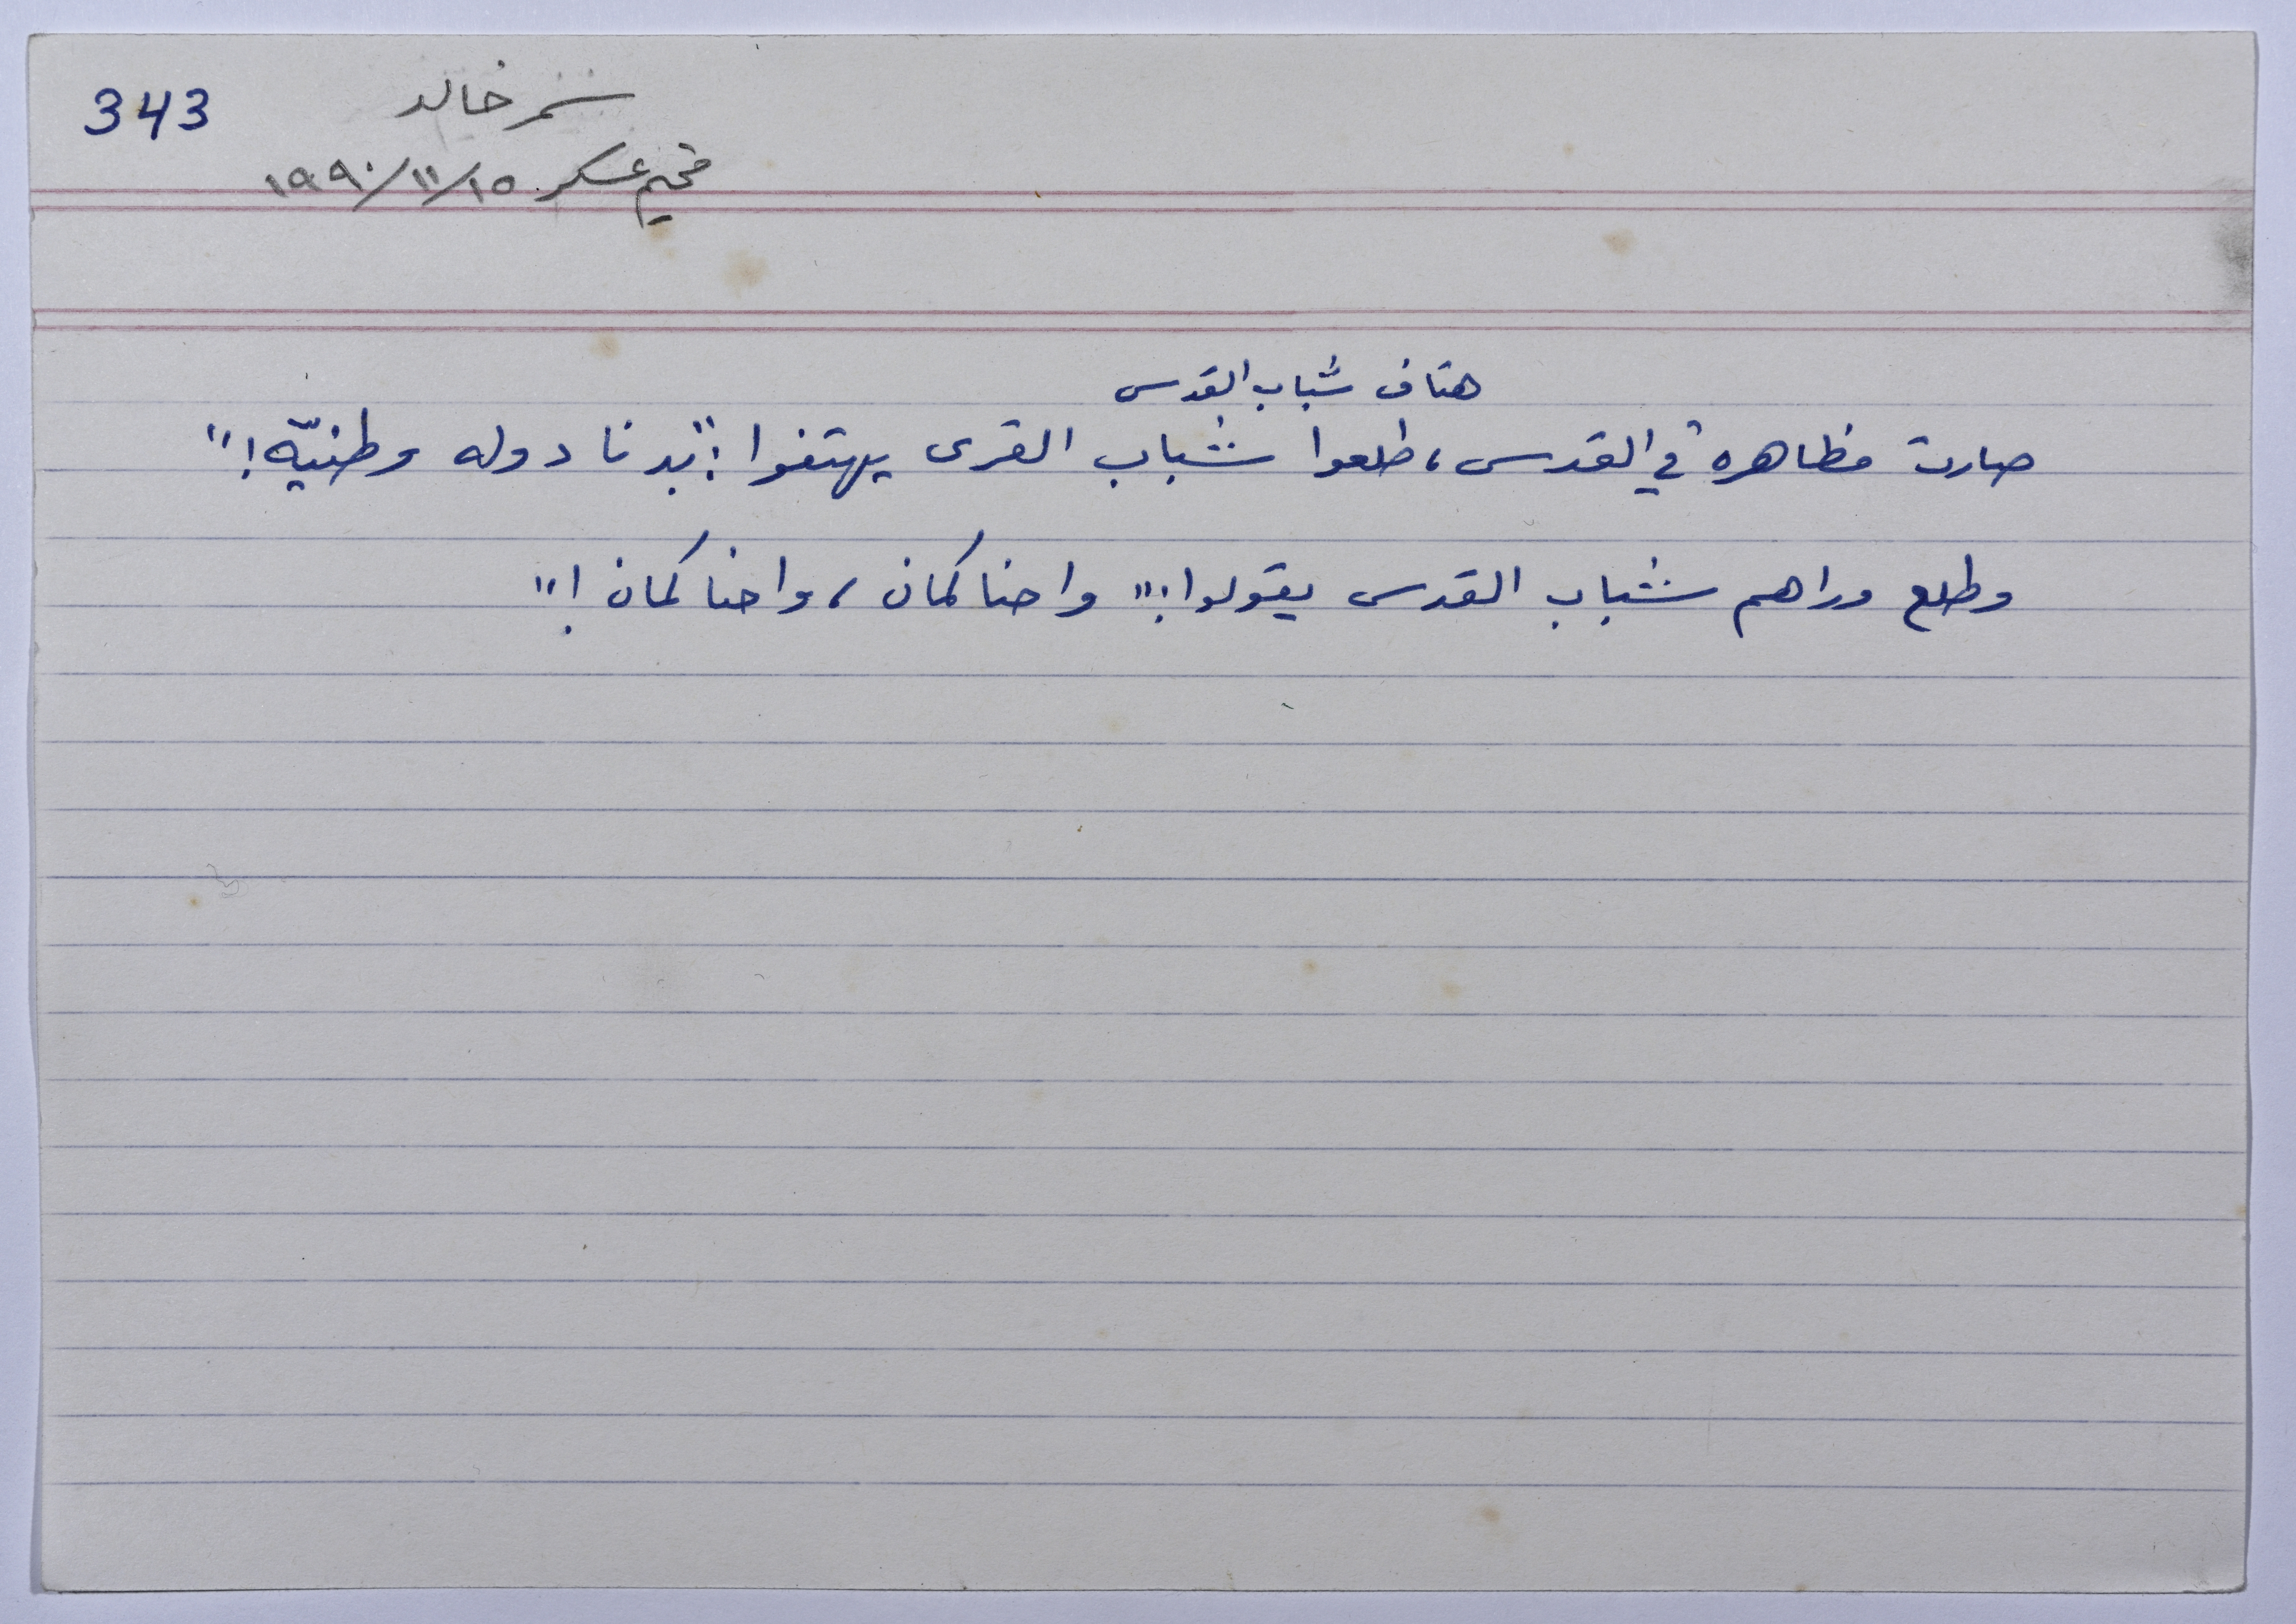 343
نمر خالد
مخيم عسكر ١٩٩٠/١١/١٥
هتاف شباب القدس
صارت مظاهره في القدس، طلعوا شباب القرى يهتفوا: "بدنا دوله وطنيّه!"
وطلع وراهم شباب القدس يقولوا: "واحنا كمان، واحنا كمان!"